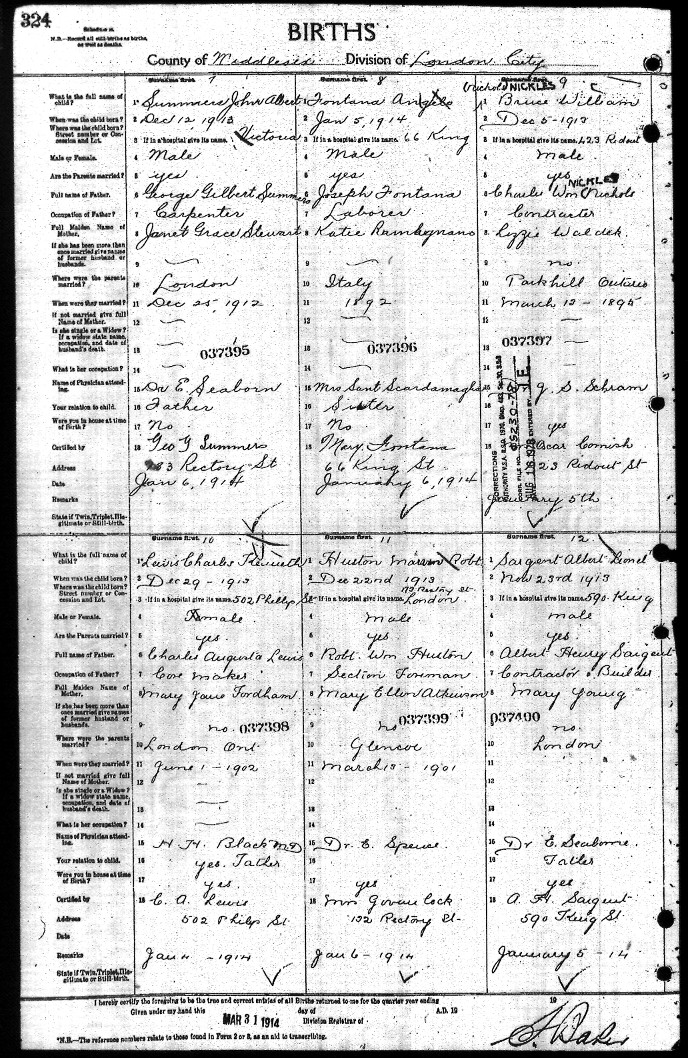 324
Schedule A.
N.B.—Record all still-births as births, as well as deaths.
BIRTHS
County of Middlesex Division of London City
Surname first. 7
Surname first. 8
Surname first. 9
Nichols NICKLES
What is the full name of child?
1 Summers John Albert
1 Fontana Angelo
1 Bruce William
When was the child born?
2 Dec 12, 1913
2 Jan 5, 1914
2 Dec 5 - 1913
Where was the child born? Street number or Concession and Lot.
3 If in a hospital give its name. Victoria
3 If in a hospital give its name. 66 King
3 If in a hospital give its name. 423 Ridout
Male or Female.
4 Male
4 Male
4 male
Are the Parents married?
5 yes
5 yes
5 yes
NICKLES
Full name of Father.
6 George Gilbert Summers
6 Joseph Fontana
6 Charles Wm Nichols
Occupation of Father?
7 Carpenter
7 Laborer
7 Contractor
Full Maiden Name of Mother.
8 Janet Grace Stewart
8 Katie
8 Lizzie Waldek
If she has been more than once married give names of former husband or husbands.
9
9
9 no.
Where were the parents married?
10 London
10 Italy
10 Parkhill Ontario
When were they married?
11 Dec 25, 1912
11 1892
11 March 13 - 1895
If not married give full Name of Mother.
12
12
12
Is she single or a Widow? If a widow state name, occupation, and date of husband's death.
13 037395
13 037396
13 037397
What is her occupation?
14
14
14
Name of Physician attending.
15 Dr E. Seaborn
15 Mrs Sant Scardamaglia
15 Dr. G. S. Schram
Your relation to child.
16 Father
16 Sister
Were you in house at time of Birth?
17 No
17 No
17 yes
Certified by
18 Geo G Summers
18 Mary Fontana
18 Oscar Cornish
Address
Rectory St
66 King St.
423 Ridout St
Date
Jan 6, 1914
January 6, 1914
January 5th
Remarks
State if Twin, Triplet, Illegitimate or Still-birth.
CORRECTIONS
AUG 16 1978
Surname first. 10
Surname first. 11
Surname first. 12
What is the full name of child?
1 Lewis Charles Kenneth
1 Huston Robt.
1 Sargent Albert Lionel
When was the child born?
2 Dec 29 - 1913
2 Dec 22nd 1913
2 Nov 23rd 1913
Where was the child born? Street number or Concession and Lot.
3 If in a hospital give its name. 502 Phillip St
132 Rectory St
3 If in a hospital give its name. London
3 If in a hospital give its name. 590 King
Male or Female.
4 male
4 male
4 male
Are the Parents married?
5 yes.
5 yes
5 yes.
Full name of Father.
6 Charles Augusta Lewis
6 Robt. Wm Huston
6 Albert Henry Sargent
Occupation of Father?
7 Core Maker
7 Section Foreman
7 Contractor & Builder
Full Maiden Name of Mother.
8 Mary Jane Fordham
8 Mary Ellen Atkinson
8 Mary Young
If she has been more than once married give names of former husband or husbands.
9 no. 037398
9 no 037399
9 no. 037400
Where were the parents married?
10 London Ont.
10 Glencoe
10 London
When were they married?
11 June 1 - 1902
11 March 13 - 1901
11
If not married give full Name of Mother.
12
12
12
Is she single or a Widow? If a widow state name, occupation, and date of husband's death.
13
13
13
What is her occupation?
14
14
14
Name of Physician attending.
15 H. H. Black M.D
15 Dr. E. Spence
15 Dr E. Seaborne.
Your relation to child.
16 yes. Father
16
16 Father
Were you in house at time of Birth?
17 yes.
17 yes
17 yes
Certified by
18 C. A. Lewis
18 Mrs Govan Cock
18 A. H. Sargent
Address
502 Philip St
132 Rectory St
590 King St.
Date
Remarks
Jan 4 - 1914
Jan 6 - 1914
January 5 - 14
State if Twin, Triplet, Illegitimate or Still-birth.
I hereby certify the foregoing to be the true and correct entries of all Births returned to me for the quarter year ending 19
Given under my hand this day of A.D. 19
MAR 31 1914
Division Registrar of
S. Baker
*N.B.—The reference numbers relate to those found in Form 2 or 3, as an aid to transcribing.